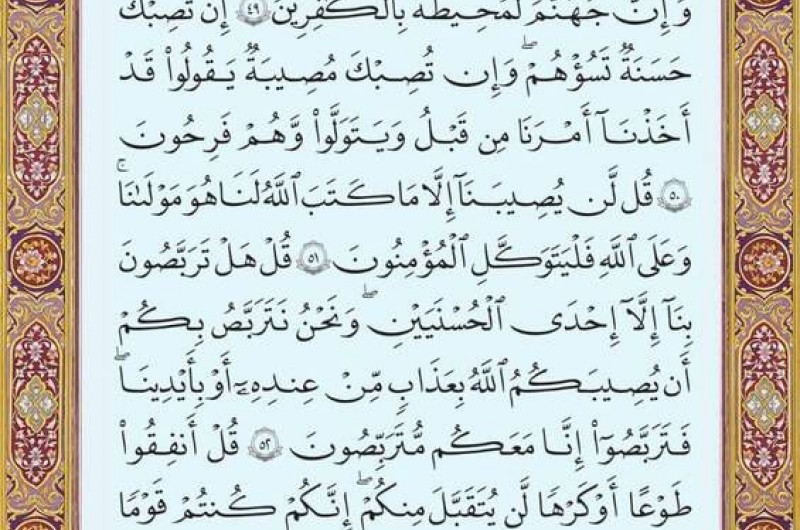 وَإِنَّ جَهَنَّمَ لَمُحِيطَةٌۢ بِٱلْكَٰفِرِينَ ٤٩ إِن تُصِبْكَ
حَسَنَةٌ تَسُؤْهُمْ ۖ وَإِن تُصِبْكَ مُصِيبَةٌ يَقُولُوا۟ قَدْ
أَخَذْنَآ أَمْرَنَا مِن قَبْلُ وَيَتَوَلَّوا۟ وَّهُمْ فَرِحُونَ
٥٠ قُل لَّن يُصِيبَنَآ إِلَّا مَا كَتَبَ ٱللَّهُ لَنَا هُوَ مَوْلَىٰنَا ۚ
وَعَلَى ٱللَّهِ فَلْيَتَوَكَّلِ ٱلْمُؤْمِنُونَ ٥١ قُلْ هَلْ تَرَبَّصُونَ
بِنَآ إِلَّآ إِحْدَى ٱلْحُسْنَيَيْنِ ۖ وَنَحْنُ نَتَرَبَّصُ بِكُمْ
أَن يُصِيبَكُمُ ٱللَّهُ بِعَذَابٍ مِّنْ عِندِهِۦٓ أَوْ بِأَيْدِينَا ۖ
فَتَرَبَّصُوٓا۟ إِنَّا مَعَكُم مُّتَرَبِّصُونَ ٥٢ قُلْ أَنفِقُوا۟
طَوْعًا أَوْ كَرْهًا لَّن يُتَقَبَّلَ مِنكُمْ ۖ إِنَّكُمْ كُنتُمْ قَوْمًا